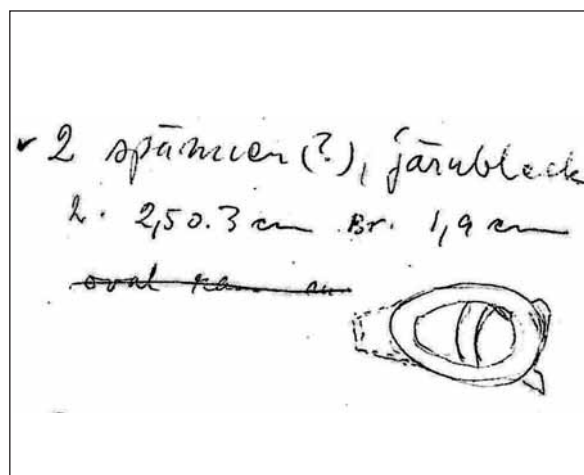 ✓ 2 spännen (?), järnbleck
L. 2,5 o. 3 cm Br. 1,9 cm
oval